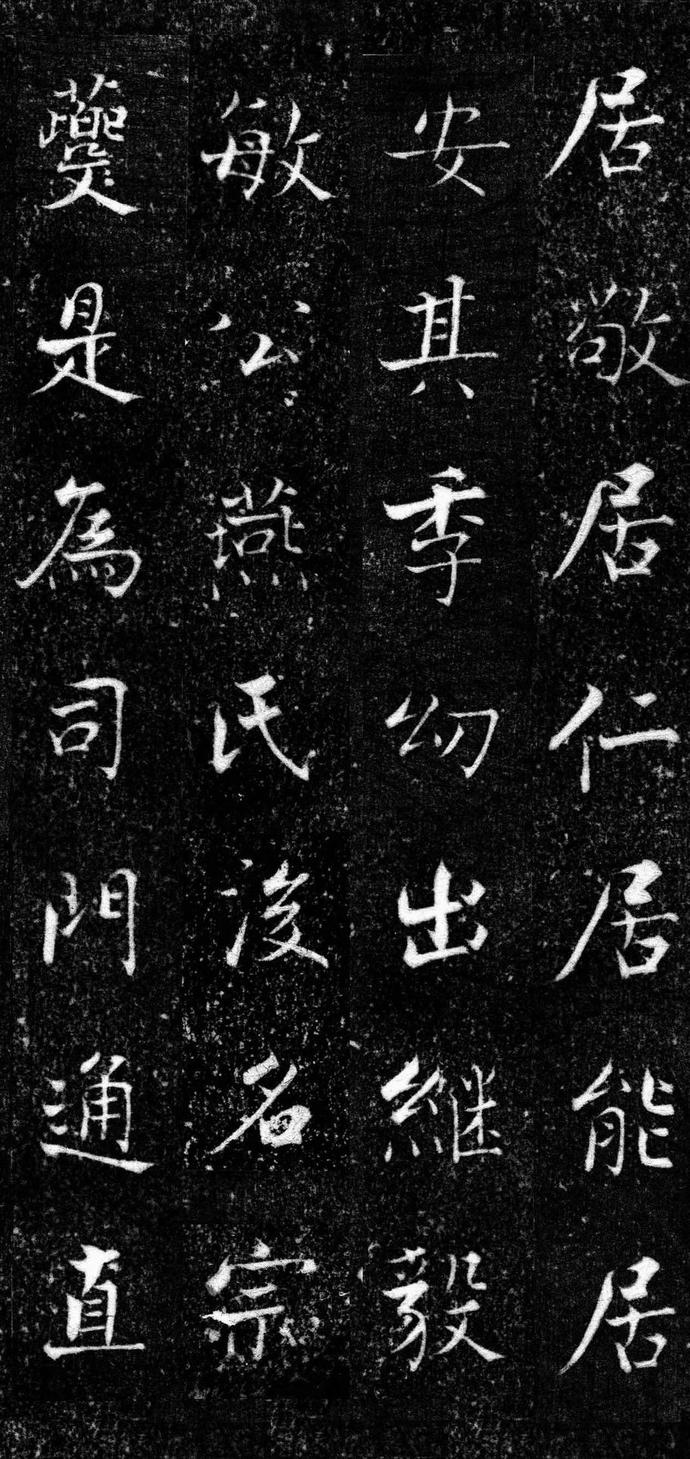 居敬居仁居能居
安其季幼出継毅
敏公燕氏後名宗
夔是為司門通直